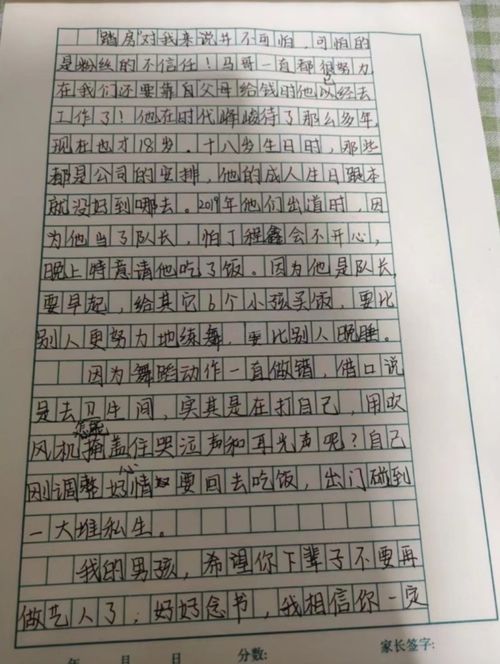 "踏房"对我来说并不可怕，可怕的
是粉丝的不信任！马哥一直都很努力
在我们还要靠自父母给钱时他已以经去
工作了！他在时代峰峻待了那么多年，
现在也才18岁。十八岁生日时，那些
都是公司的安排，他的成人生日跟本
就没好到哪去。2019年他们出道时，因
为他当了队长，怕丁程鑫会不开心，
晚上特意请他吃了饭。因为他是队长，
要早起，给其它6个小孩买饭，要比
别人更努力地练舞，要比别人晚睡。
因为舞蹈动作一直做错，借口说
是去卫生间，实其是在打自己，用吹
风机怎能掩盖住哭泣声和耳光声呢？自己
刚调整好心情要回去吃饭，出门碰到
一大堆私生。
我的男孩，希望你下辈子不要再
做艺人了；好好念书，我相信你一定
年 月 日 分数: 家长签字: